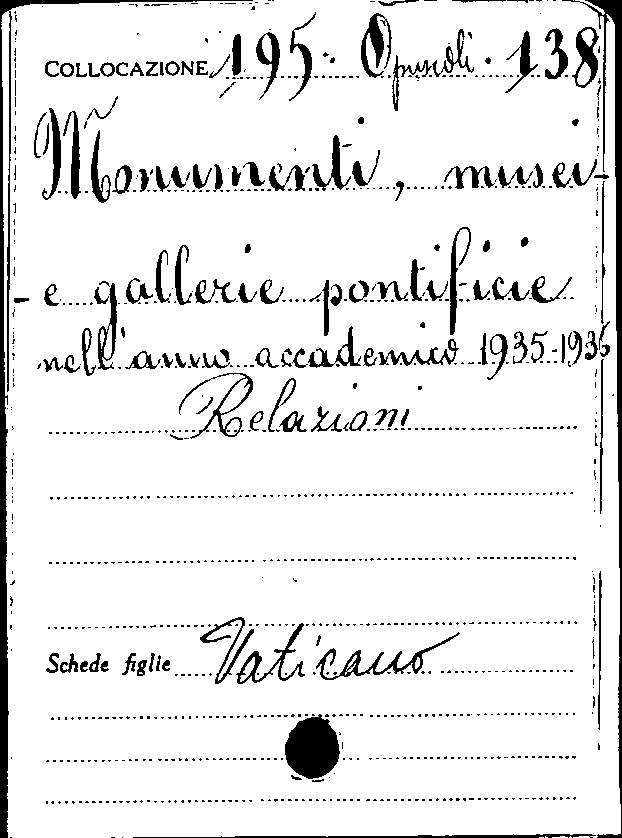 COLLOCAZIONE 195. Opuscoli. 138
Monumenti, musei-
- e gallerie pontificie
nell'anno accademico 1935-1936
Relazioni
Schede figlie Vaticano